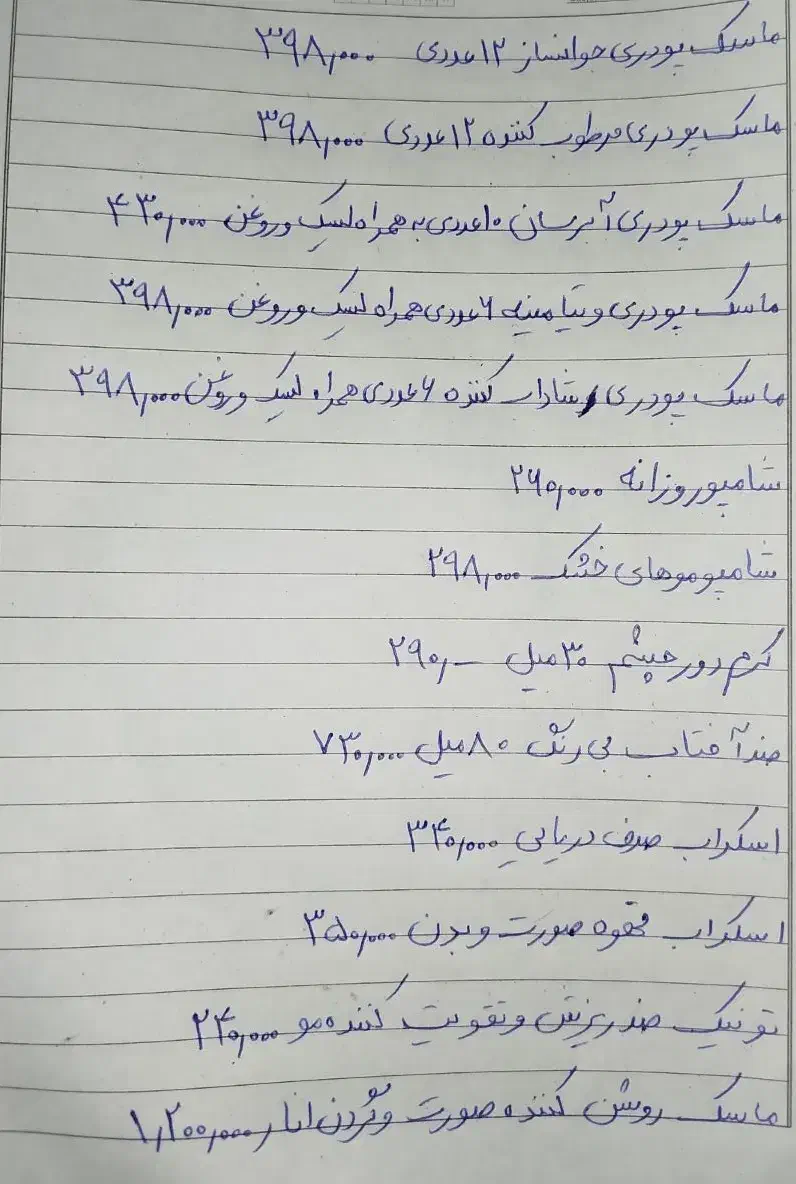 ماسک پودری جوانساز ۱۲ عددی ۳۹۸,۰۰۰
ماسک پودری مرطوب کننده ۱۲ عددی ۳۹۸,۰۰۰
ماسک پودری آبرسان ۱۰ عددی به همراه لیسک و روغن ۴۳۰,۰۰۰
ماسک پودری ویتامینه ۶ عددی همراه لیسک و روغن ۳۹۸,۰۰۰
ماسک پودری شاداب کننده ۶ عددی همراه لیسک و روغن ۳۹۸,۰۰۰
شامپو روزانه ۲۶۰,۰۰۰
شامپو موهای خشک ۲۹۸,۰۰۰
کرم دور چشم ۳۰ میل ۲۹۰,—
ضد آفتاب بی رنگ ۸۰ میل ۷۳۰,۰۰۰
اسکراب صدف دریایی ۳۴۰,۰۰۰
اسکراب قهوه صورت و بدن ۳۵۰,۰۰۰
تونیک ضد ریزش و تقویت کننده مو ۲۴۰,۰۰۰
ماسک روشن کننده صورت و گردن انار ۱,۲۰۰,۰۰۰